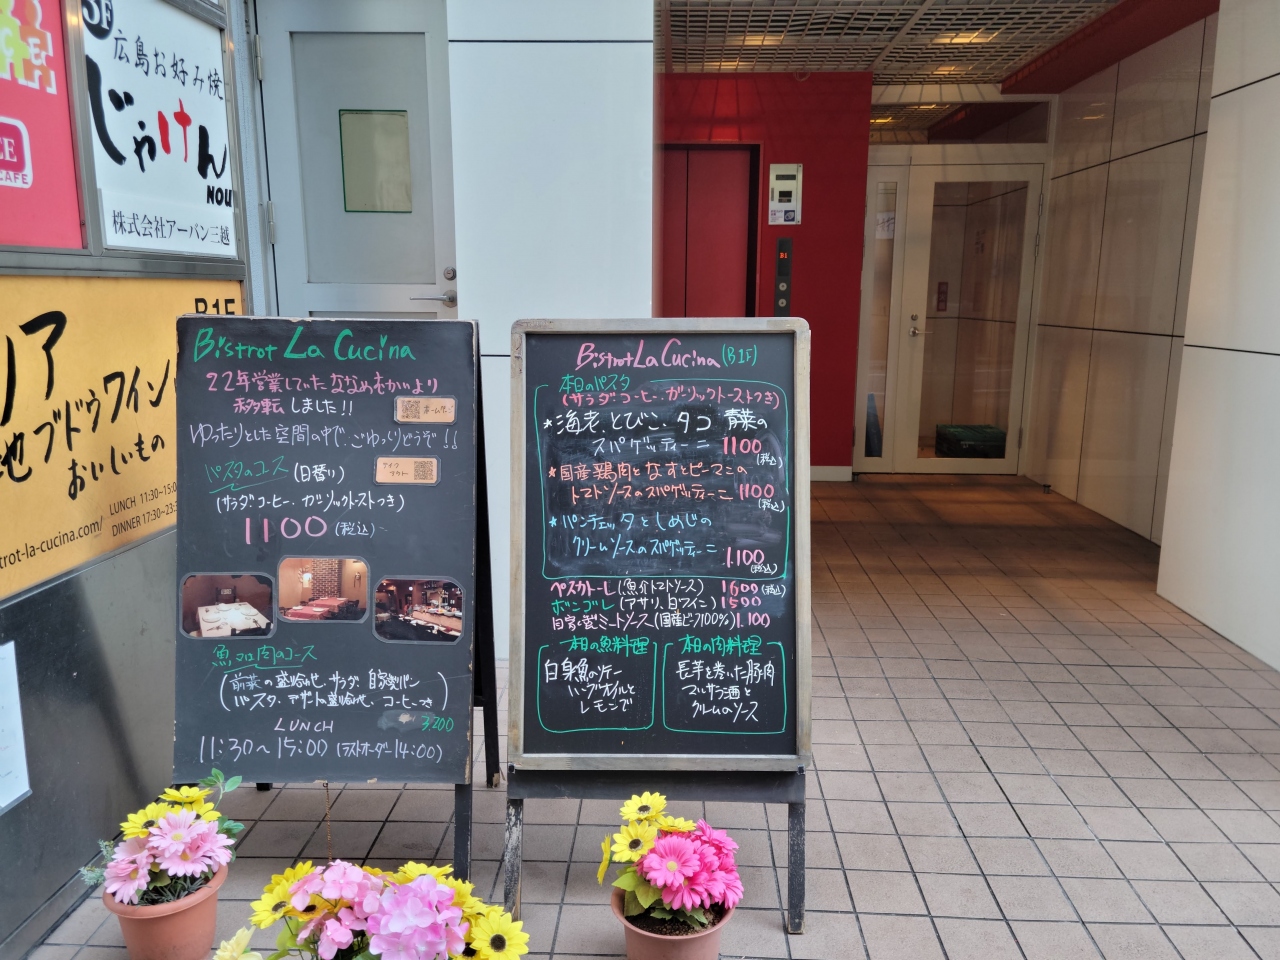 5F
広島お好み焼
じゃけん
NOU
株式会社アーバン三越
CAFE
B1F
ブドウワイン
おいしいもの
LUNCH 11:30~15:0
DINNER 17:30~23:3
trot-la-cucina.com/
Bistrot La Cucina
22年営業していたななめむかいより
移転しました!!
ホームページ
ゆったりとした空間の中で、ごゆっくりどうぞ!!
パスタのコース (日替り)
テイクアウト
(サラダ、コーヒー、ガーリックトーストつき)
1100 (税込)
魚または肉のコース
(前菜の盛り合わせ、サラダ、自家製パン
パスタ、デザートの盛り合わせ、コーヒーつき)
3.200
LUNCH
11:30~15:00 (ラストオーダー14:00)
Bistrot La Cucina (B1F)
本日のパスタ
(サラダ コーヒー、ガーリックトーストつき)
*海老、とびこ、タコ 青菜の
スパゲッティーニ 1100
(税込)
*国産鶏肉となすとピーマンの
トマトソースのスパゲッティーニ 1100
(税込)
*パンチェッタとしめじの
クリームソースのスパゲッティーニ
1.100
(税込)
ペスカトーレ (魚介トマトソース) 1600 (税込)
ボンゴレ (アサリ、白ワイン) 1500
自家製ミートソース (国産ビーフ100%) 1.100
本日の魚料理
白身魚のソテー
ハーブオイルと
レモンで
本日の肉料理
長芋を巻いた豚肉
マルサラ酒と
クリームのソース
B1